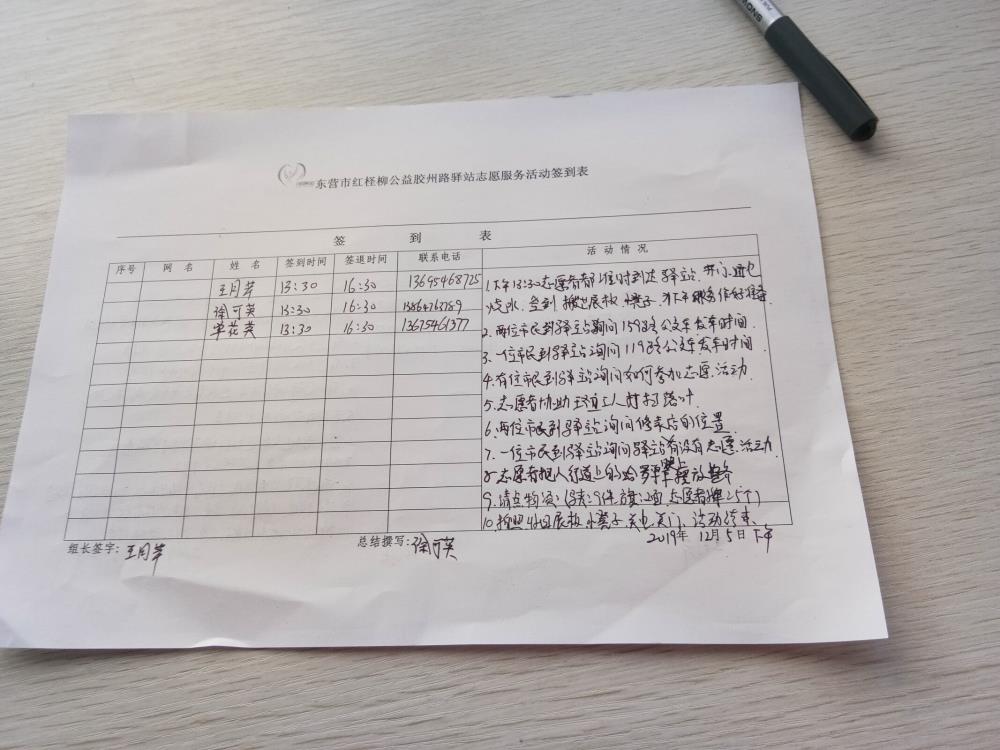 东营市红柽柳公益胶州路驿站志愿服务活动签到表
签 到 表
序号 网名 姓名 签到时间 签退时间 联系电话 活动情况
王月芹 13:30 16:30 13695468725
徐可英 13:30 16:30 13864763789
单花英 13:30 16:30 13675461377
1.下午13:30志愿者都准时到达驿站.开门.通电
烧水.签到.搬进展板.小凳子.为下午服务作好准备.
2.两位市民到驿站询问159路公交车发车时间.
3.一位市民到驿站询问119路公交车发车时间.
4.有位市民到驿站询问如何参加志愿活动.
5.志愿者协助环道工人打扫落叶.
6.两位市民到驿站询问修表店的位置.
7.一位市民到驿站询问驿站有没有志愿活动.
8.志愿者把人行道上的单车摆放整齐
9.清点物资:(马夹:9件.旗:2面.志愿者牌25个)
10.拍照.收回展板.小凳子.关电关门.活动结束.
组长签字:王月芹 总结撰写:徐可英 2019年12月5日下午